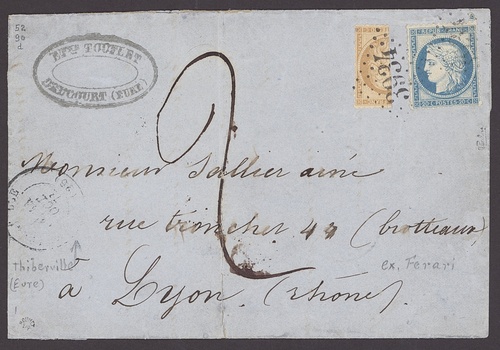 52
90
d
ETne TOUFLET
DRUCOURT (EURE)
3924
REPUB FRANC
20 C POSTES 20 C
2
Monsieur Sallier ainé
rue tronchet 44 (brotteaux)
à Lyon (rhône).
Thiberville
(Eure)
ex. Ferrari